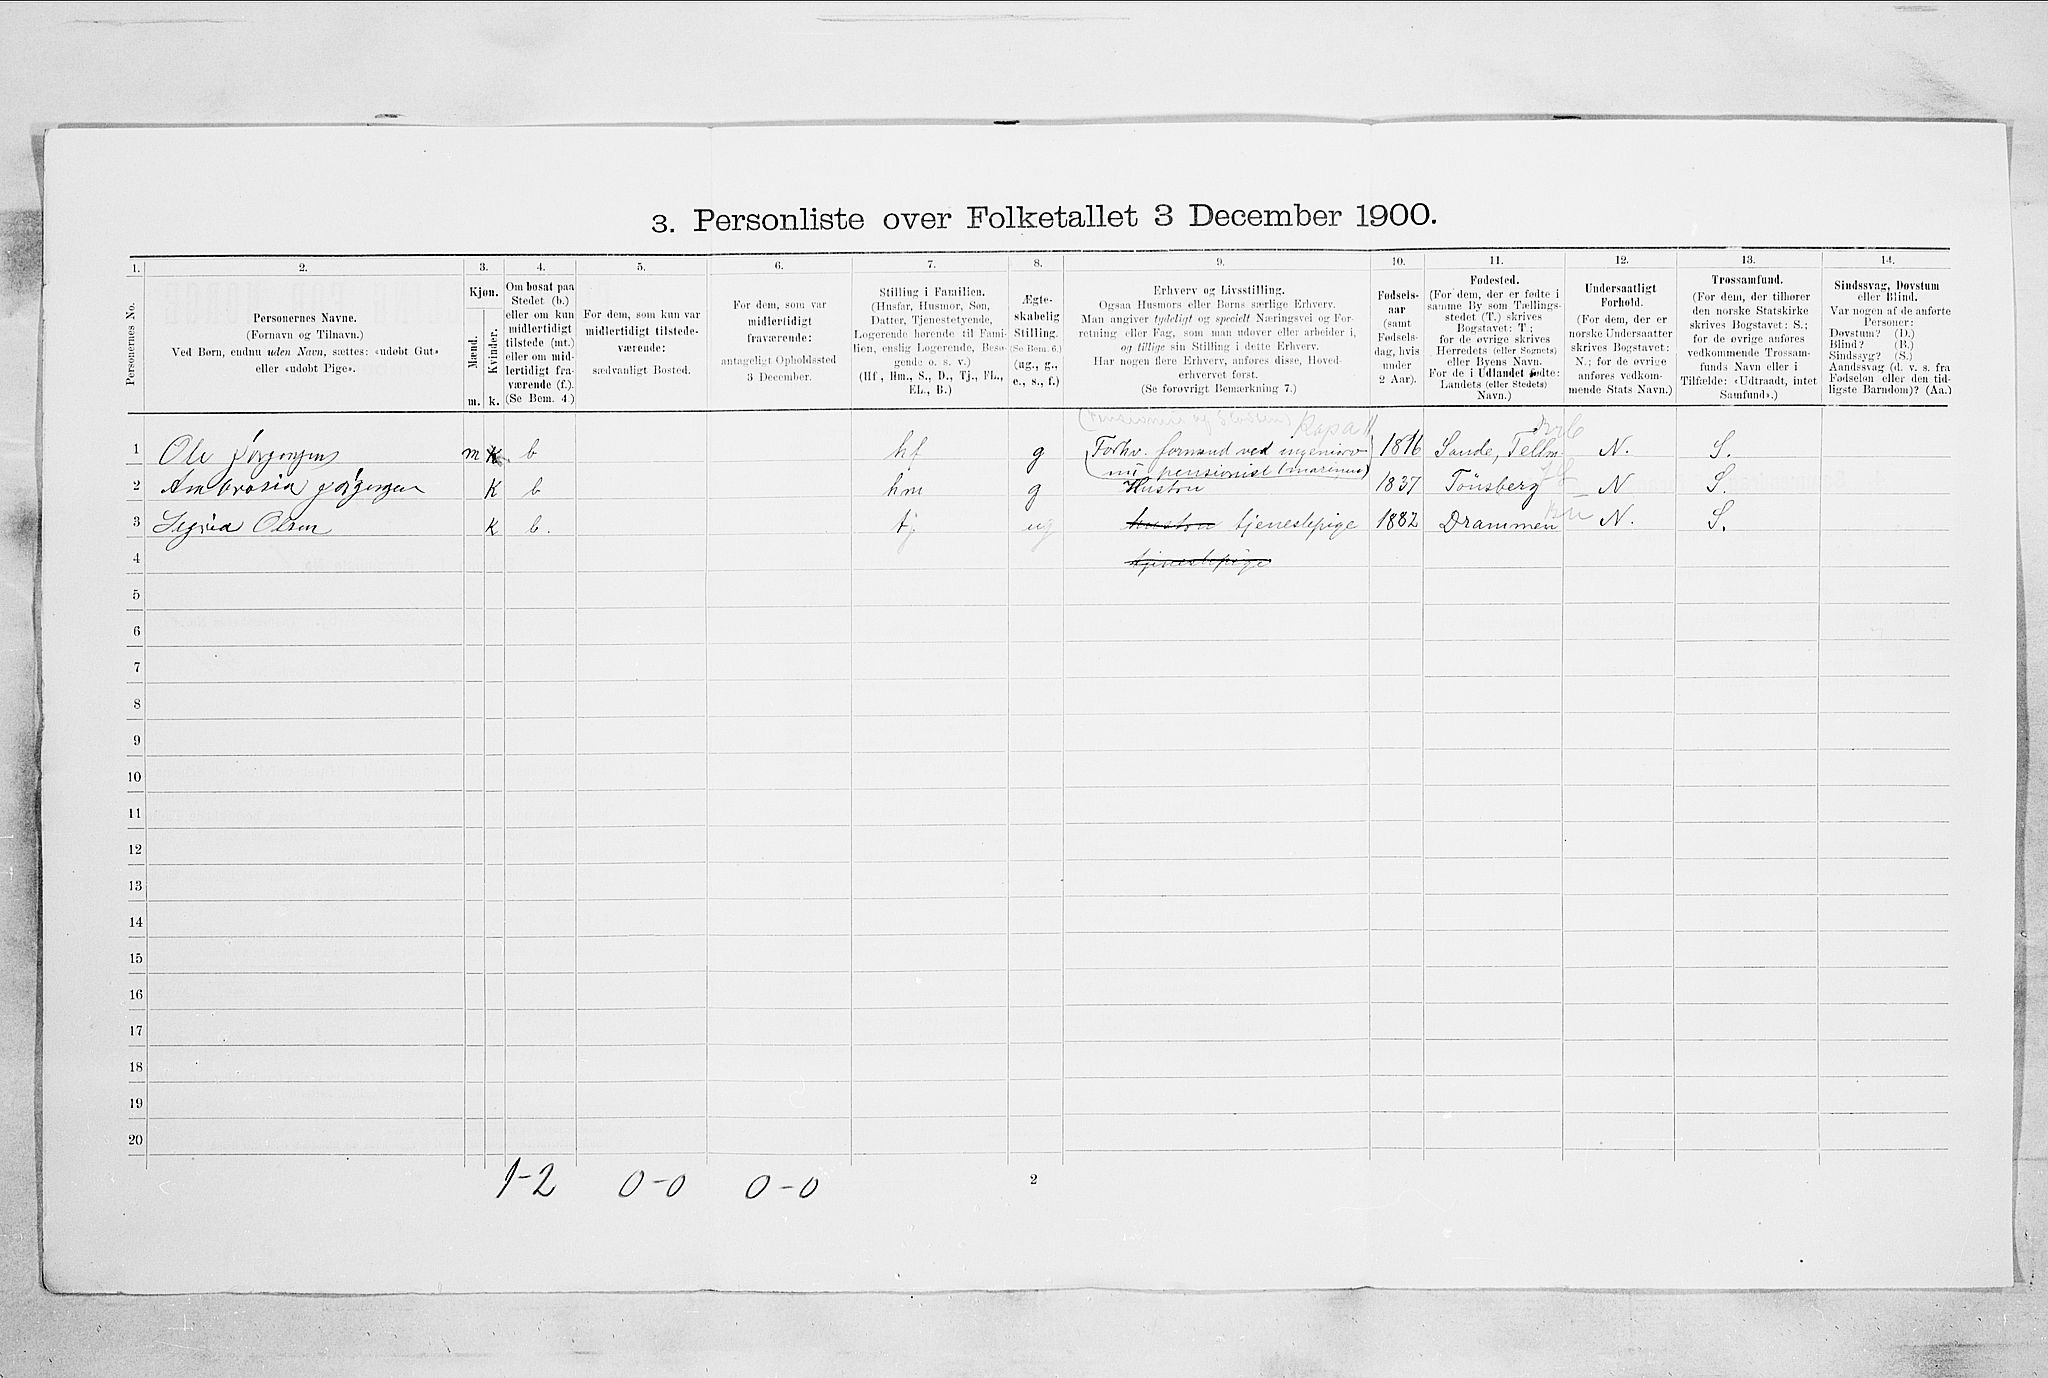 3. Personliste over Folketallet 3 December 1900.
1. 2. 3. 4. 5. 6. 7. 8. 9. 10. 11. 12. 13. 14.
Personernes No.
Personernes Navne.
(Fornavn og Tilnavn.)
Ved Børn, endnu uden Navn, sættes: «udøbt Gut»
eller «udøbt Pige».
Kjøn.
Mænd.
Kvinder.
m. k.
Om bosat paa
Stedet (b.)
eller om kun
midlertidigt
tilstede (mt.)
eller om mid-
lertidigt fra-
værende (f.).
(Se Bem. 4.)
For dem, som kun var
midlertidigt tilstede-
værende:
sædvanligt Bosted.
For dem, som var
midlertidigt
fraværende:
antageligt Opholdssted
3 December.
Stilling i Familien.
(Husfar, Husmor, Søn,
Datter, Tjenestetyende,
Logerende hørende til Fami-
lien, enslig Logerende, Besø-
gende o. s. v.)
(Hf., Hm., S., D., Tj., FL.,
EL., B.)
Ægte-
skabelig
Stilling.
(Se Bem. 6.)
(ug., g.,
e., s., f.)
Erhverv og Livsstilling.
Ogsaa Husmors eller Børns særlige Erhverv.
Man angiver tydeligt og specielt Næringsvei og For-
retning eller Fag, som man udøver eller arbeider i,
og tillige sin Stilling i dette Erhverv.
Har nogen flere Erhverv, anføres disse, Hoved-
erhvervet først.
(Se forøvrigt Bemærkning 7.)
Fødsels-
aar
(samt
Fødsels-
dag, hvis
under
2 Aar).
Fødested.
(For dem, der er fødte i
samme By som Tællings-
stedet (T.) skrives
Bogstavet: T.;
for de øvrige skrives
Herredets (eller Sognets)
eller Byens Navn.
For de i Udlandet fødte:
Landets (eller Stedets)
Navn.)
Undersaatligt
Forhold.
(For dem, der er
norske Undersaatter
skrives Bogstavet:
N.; for de øvrige
anføres vedkom-
mende Stats Navn.)
Trossamfund.
(For dem, der tilhører
den norske Statskirke
skrives Bogstavet: S.;
for de øvrige anføres
vedkommende Trossam-
funds Navn eller i
Tilfælde: «Udtraadt, intet
Samfund».)
Sindssvag, Døvstum
eller Blind.
Var nogen af de anførte
Personer:
Døvstum? (D.)
Blind? (B.)
Sindssyg? (S.)
Aandssvag (d. v. s. fra
Fødselen eller den tid-
ligste Barndom)? (Aa.)
1 Ole Jørgensen m b hf g Forhv. formand ved ingeniørv Sande, N. S.
nu pensionist (marinen)
2 Ambrosia Jørgensen K b hm g Hustru 1837 Tönsberg N S.
3 Sigrid Olsen K b. tj ug hustru tjenestepige 1882 Drammen N. S.
4 tjenestepige
5
6
7
8
9
10
11
12
13
14
15
16
17
18
19
20
1-2 0-0 0-0
2